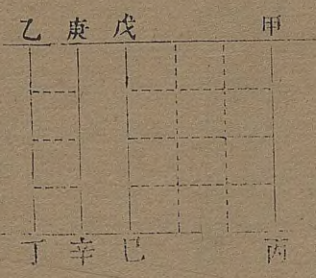 乙庚戊甲
丁辛巳丙